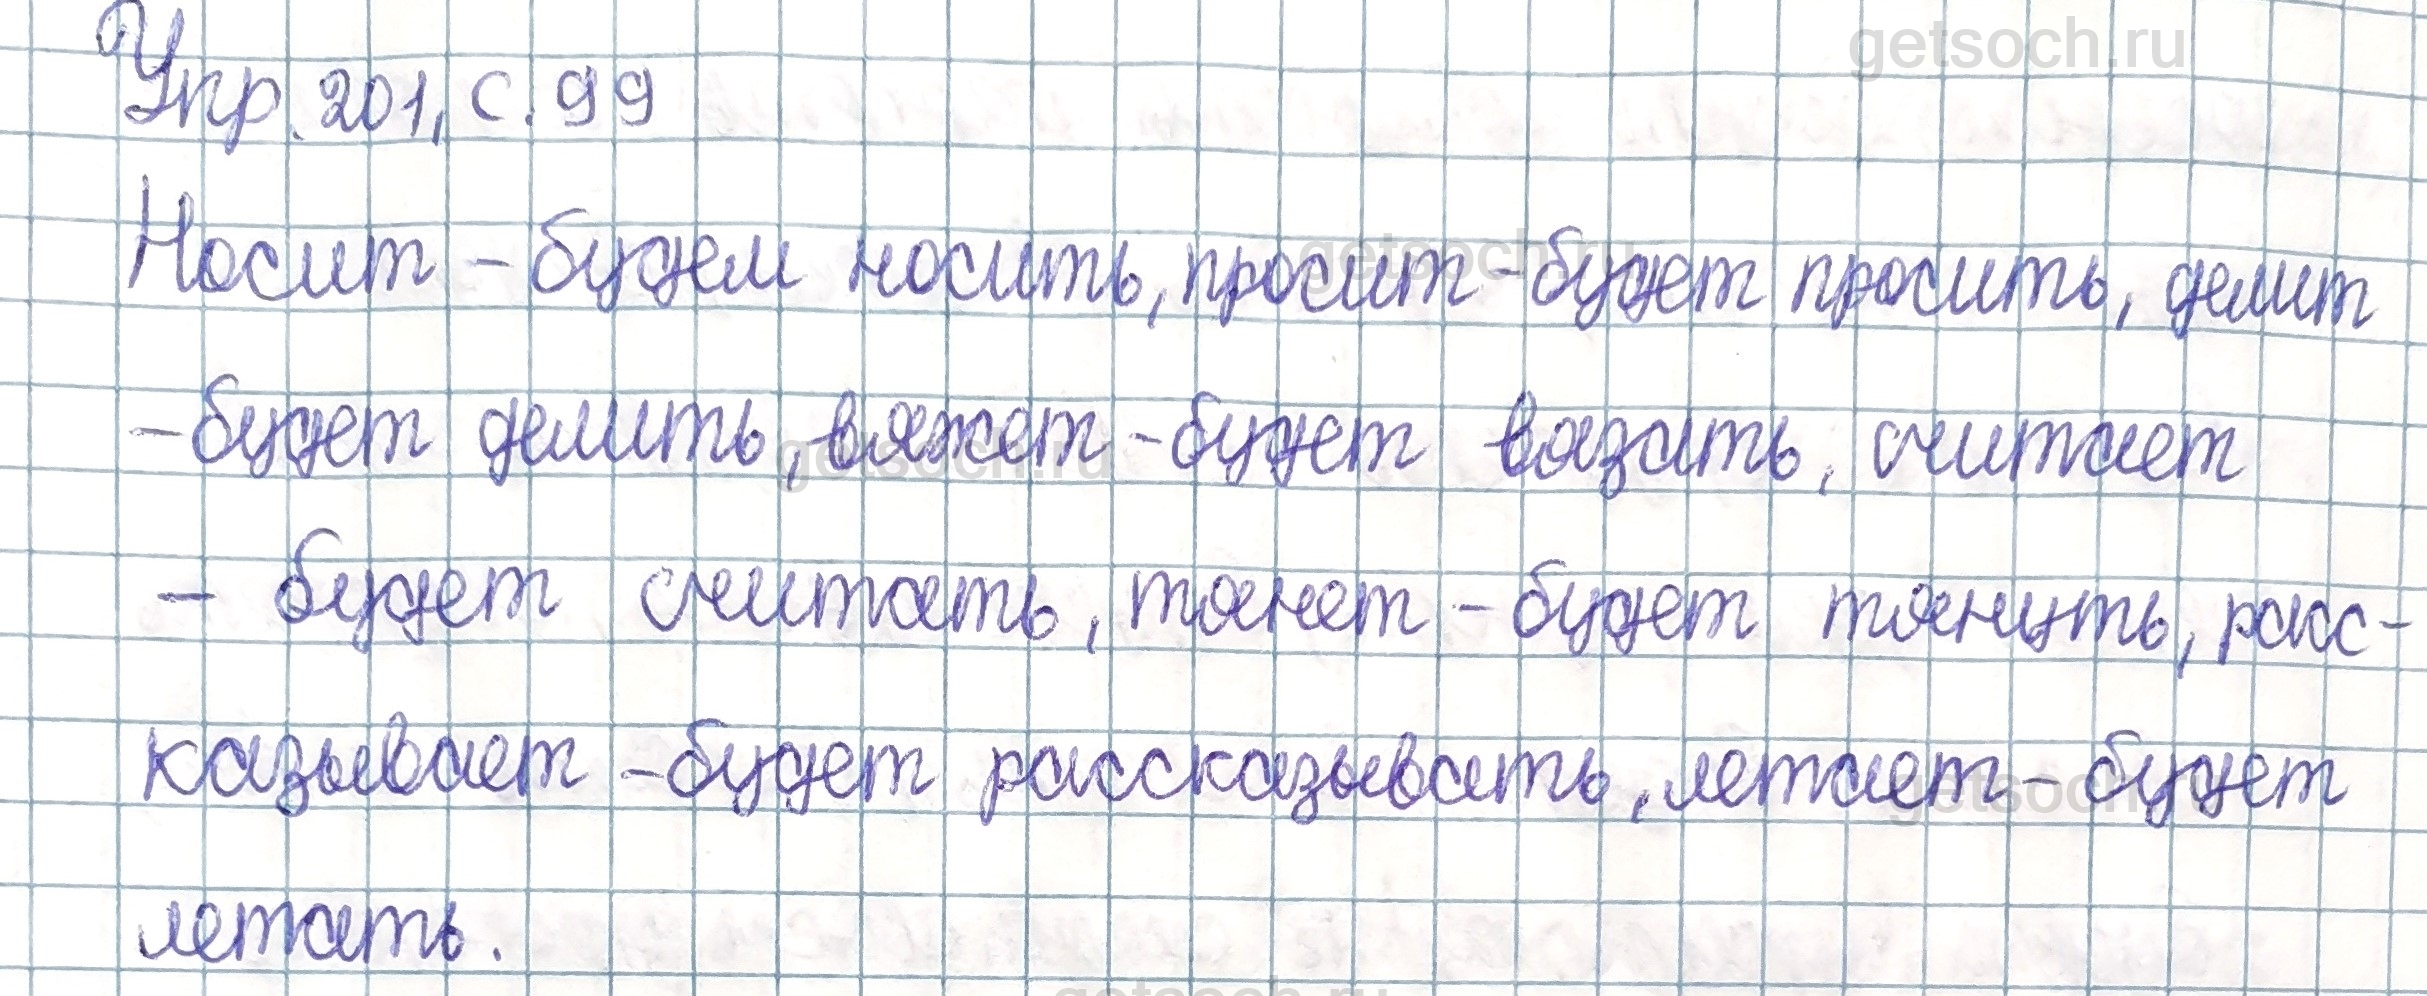 getsoch.ru
Упр. 201, с. 99
Носит - будем носить, просит - будет просить, делит
getsoch.ru
- будет делить, вяжет - будет вязать, считает
getsoch.ru
- будет считать, тянет - будет тянуть, расс-
казывает - будет рассказывать, летает - будет
getsoch.ru
летать.
getsoch.ru